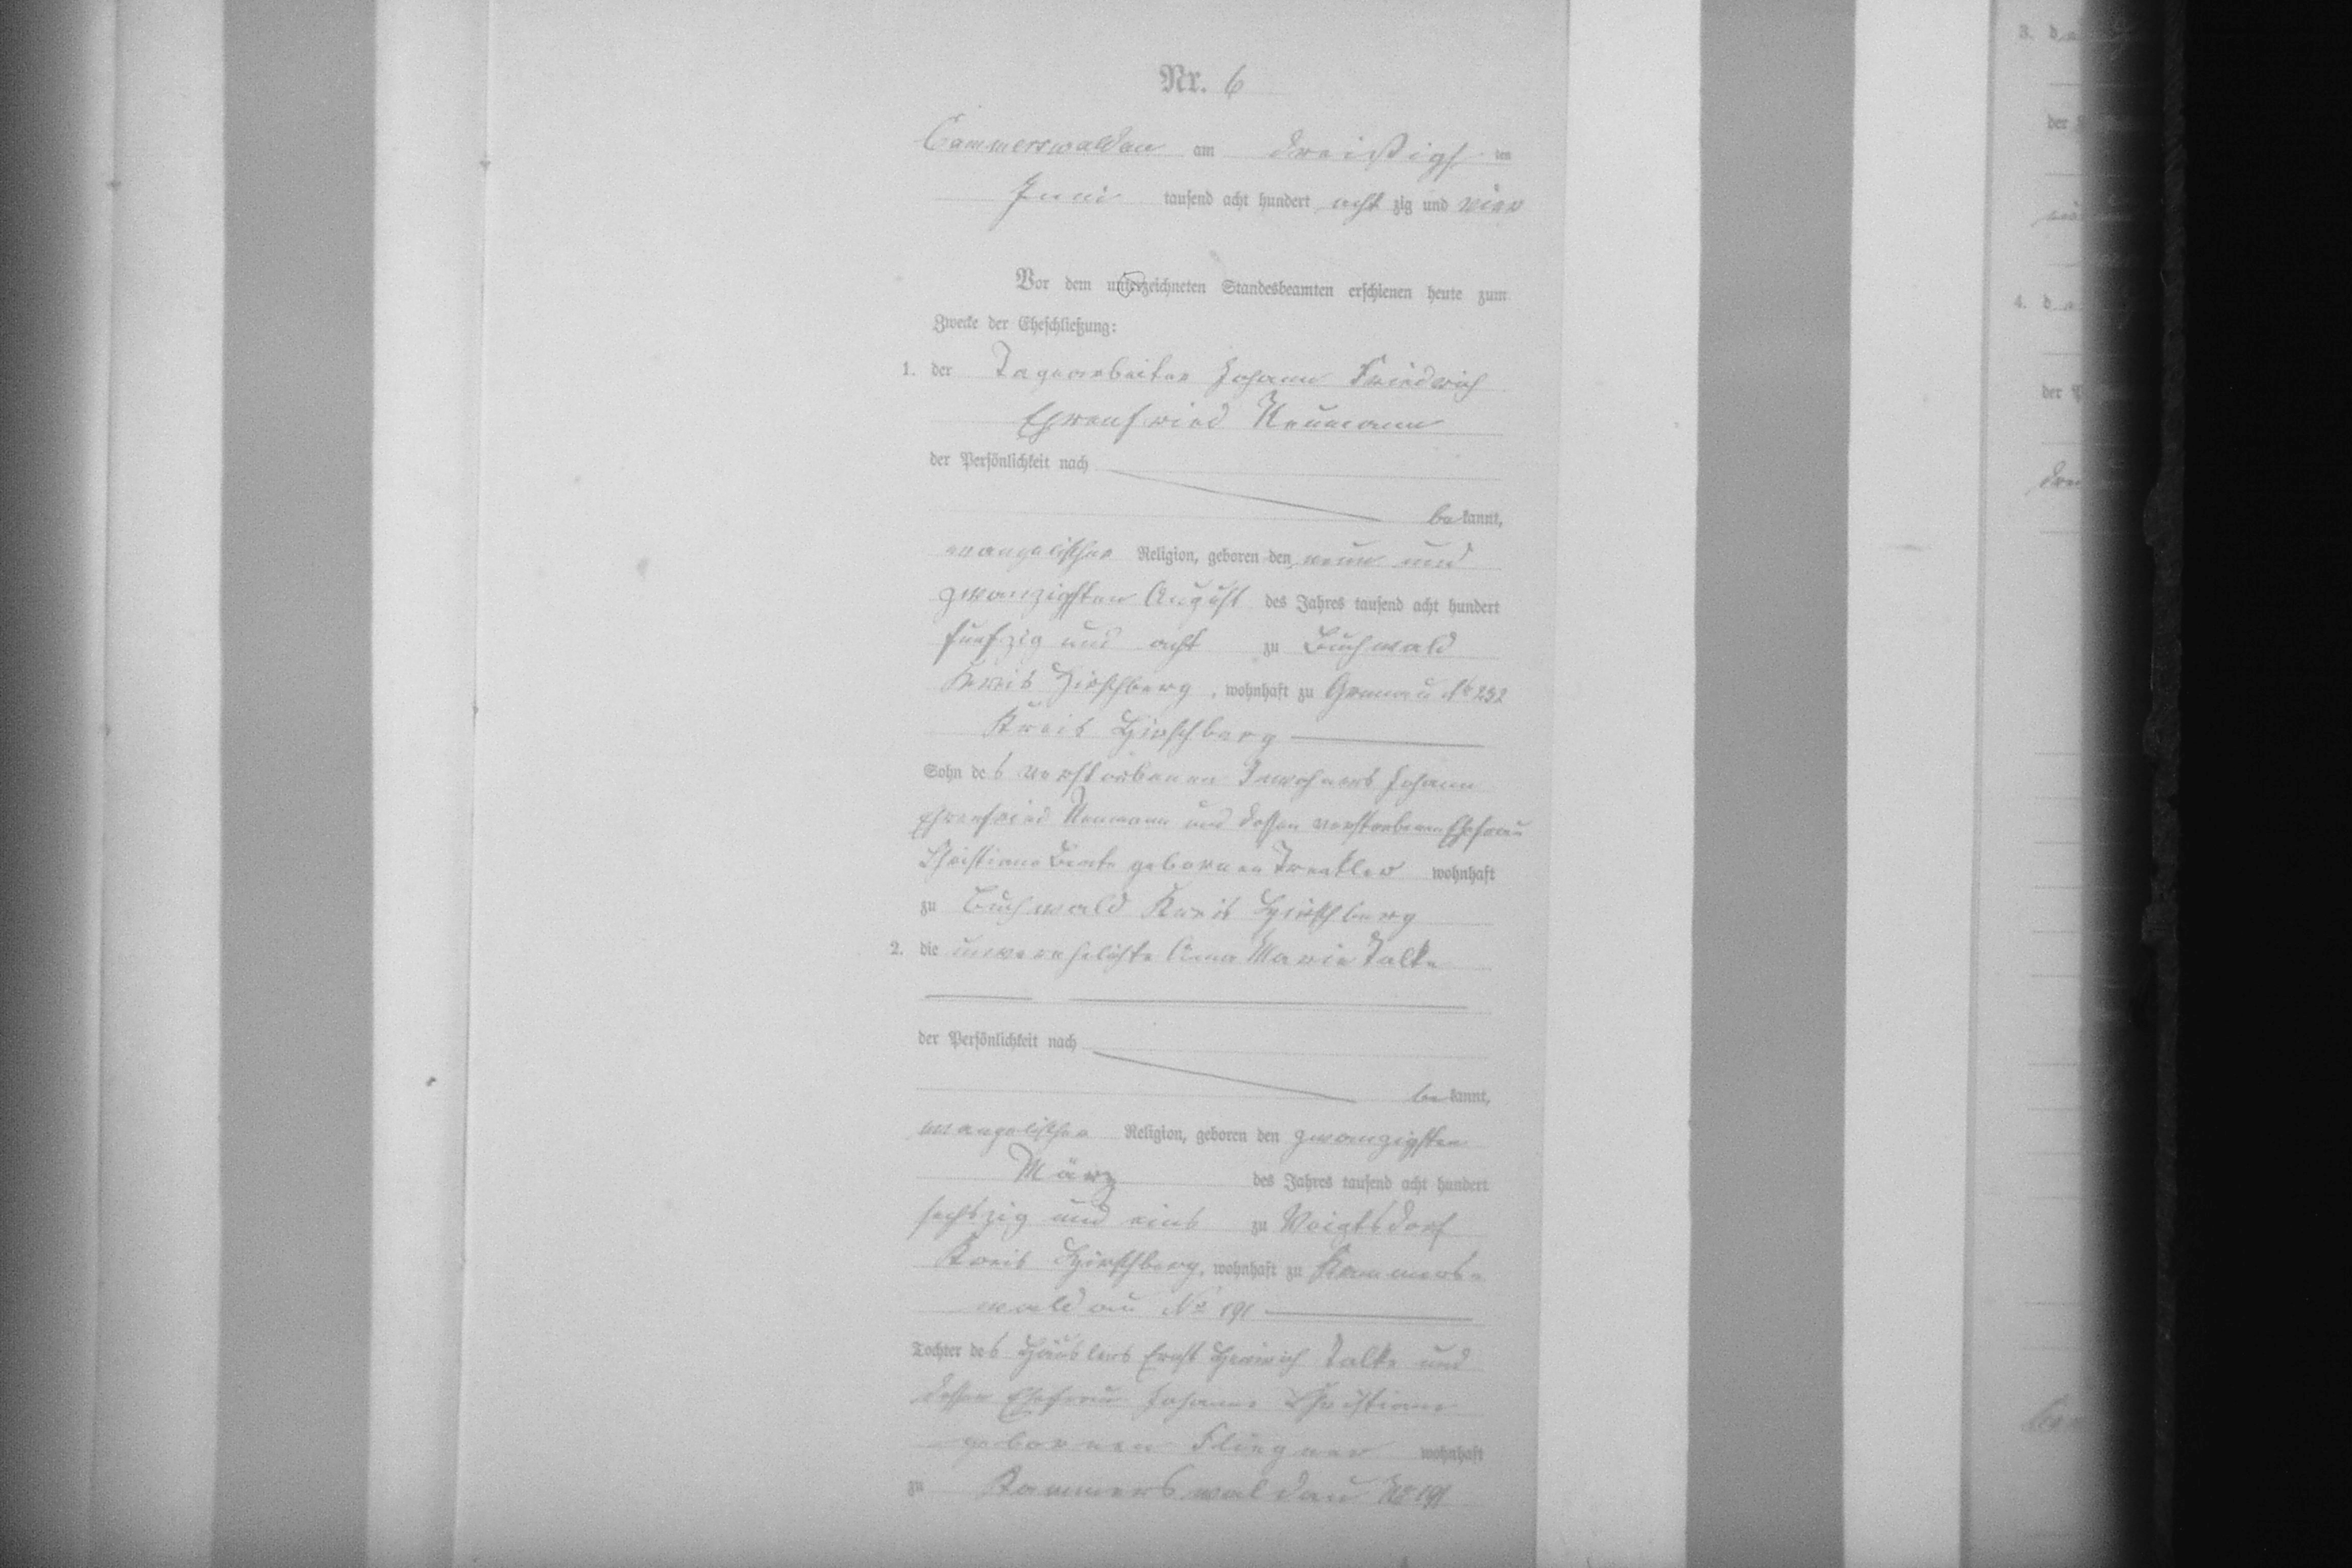 Nr. 6
Cammerswaldau am dreißigsten
Juni tausend acht hundert achtzig und vier
Vor dem unterzeichneten Standesbeamten erschienen heute zum
Zwecke der Eheschließung:
1. der Tagearbeiter Johann Friedrich
Ehrenfried Neumann
der Persönlichkeit nach
bekannt,
evangelischer Religion, geboren den neun und
zwanzigsten August des Jahres tausend acht hundert
fünfzig und acht zu Buchwald
Kreis Hirschberg, wohnhaft zu Grunau No 232
Kreis Hirschberg
Sohn des verstorbenen Inwohners Johann
Ehrenfried Neumann und dessen verstorbenen Ehefrau
Christiane Beate gebornen Trenkler wohnhaft
zu Buchwald Kreis Hirschberg
2. die unverehelichte Anna Marie Talke
der Persönlichkeit nach
bekannt,
evangelischer Religion, geboren den zwanzigsten
März des Jahres tausend acht hundert
sechszig und eins zu Voigtsdorf
Kreis Hirschberg, wohnhaft zu Kammers-
waldau No 191
Tochter des Häuslers Ernst Heinrich Talke und
dessen Ehefrau Johanne Christiane
gebornen Fliegner wohnhaft
zu Kammerswaldau No 191
3. d
der
4. d
der